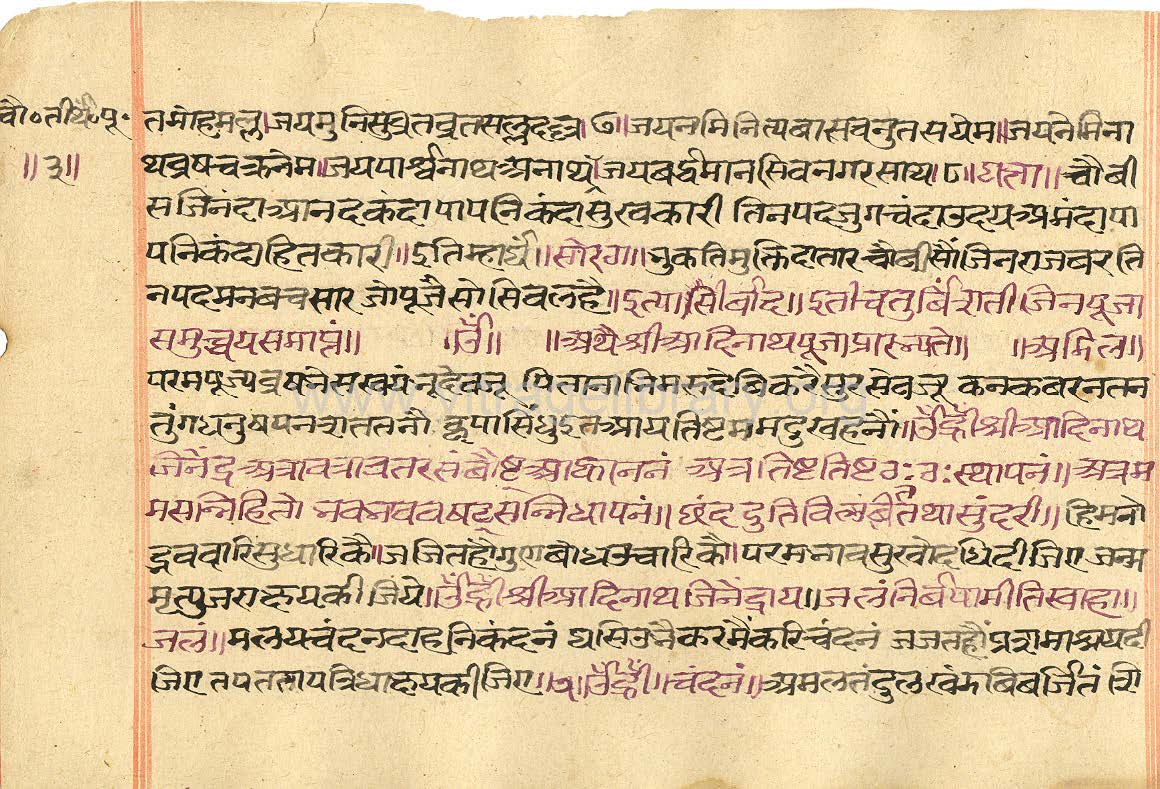 चौ०तीर्थं०पू०
॥३॥
तमोहमल्ल।जयमुनिसुव्रतव्रतसल्लदल्ल।७॥जयनमिनित्यबासवनुतसपेम॥जयनेमिना
थव्रषचक्रनेम॥जयपार्श्वनाथअनाथ।जयबर्द्धमानसिवनगरसाथ।८॥घत्ता॥चौबी
सजिनंदाआनदकंदापापनिकंदासुखकारी तिनपदजुगचंदाउदयअमंदापा
पनिकंदाहितकारी॥इतिम्हार्घं॥सोरठा॥भुकतिमुक्तिदातारचौबीसौंजिनराजबरति
नपदमनबचसारजोपूजैसोसिवलहै॥इत्या।सीर्वाद॥इतीचतुर्बिंशती।जिनपूजा
समुच्चयसमाप्तं॥ ॥ॐ॥ ॥अथैश्रीआदिनाथपूजाप्रारभ्यते॥ ॥अमिल॥
परमपूज्यव्रषभेसस्वयंभूदेवजू पितानाभिमरुदेबिकरैसुरसेवजू कनकवरनतन
तुंगधनुषपनशततनौ कृपासिंधुइतआयतिष्टममदुखहनौं॥ॐह्रीँश्रीआदिनाथ
जिनेंद्रअत्रावत्रावतरसंबौष्ट्आह्वाननं अत्रतिष्टतिष्टठः३ःस्थापनं॥ अत्रम
मसन्निहितो भवभववषट्सन्निधापनं॥छंददुतिविलंबीतंतथासुंदरी॥हिमनो
द्भववारिसुधारिकै॥जजितहौंगुणबोधउचारिकै॥परमभावसुखोदधिदीजिए जन्म
मृत्युजराक्षयकीजिये॥ॐह्रीँश्रीआदिनाथजिनेंद्राय॥जलंनिर्बपामीतिस्वाहा॥
जलं॥मलयचंदनदाहनिकंदनं घसिउभैकरमैंकरिचंदनं जजतहौंप्रशमाश्रयदी
जिए तपततापत्रिधाक्षयकीजिए॥२॥ॐह्रीँ॥चंदनं॥अमलतंदुलखंडबिबर्जितं सि
www.vitragelibrary.org